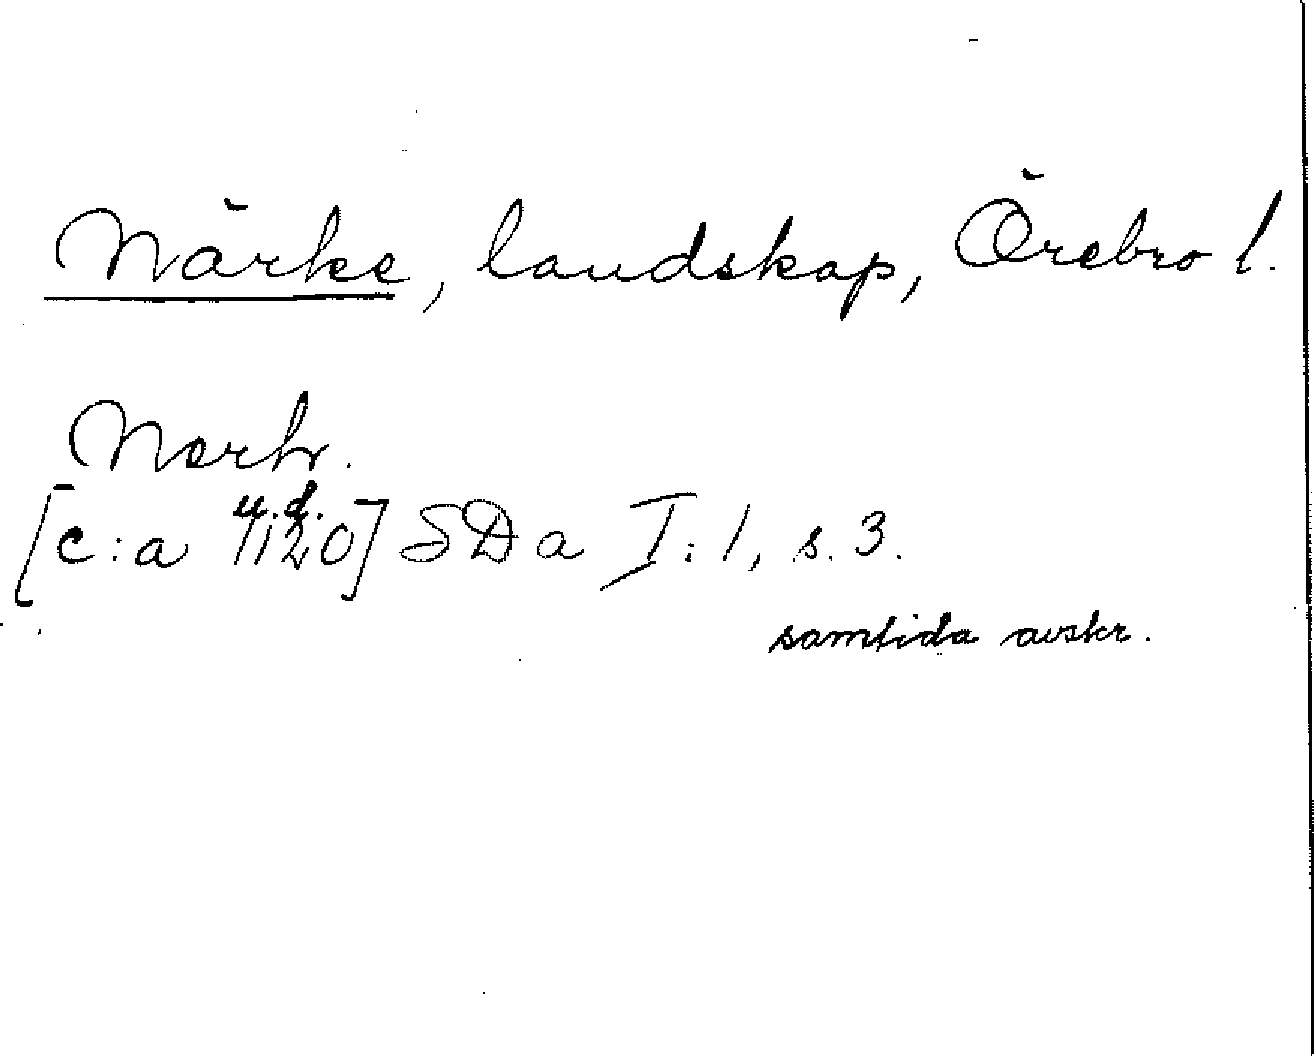 Närke, landskap, Örebro l.
Nerh.
u.d.
[c:a 1120] SDa I:1, s. 3.
samtida avskr.